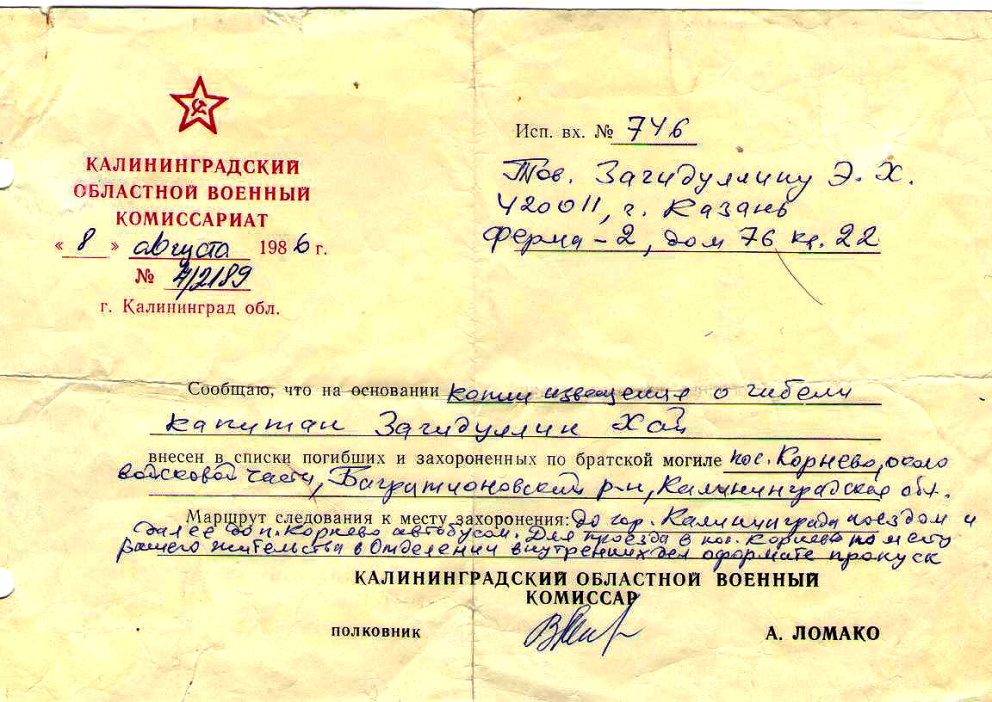 КАЛИНИНГРАДСКИЙ
ОБЛАСТНОЙ ВОЕННЫЙ
КОМИССАРИАТ
« 8 » августа 1986 г.
№ 4/2189
г. Калининград обл.
Исп. вх. № 746
Тов. Загидуллину Э. Х.
420011, г. Казань
Ферма-2, дом 76 кв. 22
Сообщаю, что на основании копии извещения о гибели
капитан Загидуллин Хай
внесен в списки погибших и захороненных по братской могиле пос. Корнево, около
войсковой части, Багратионовский р-н, Калининградская обл.
Маршрут следования к месту захоронения: до гор. Калининграда поездом и
далее до п. Корнево автобусом. Для проезда в пос. Корнево по месту
Вашего жительства в Отделении внутренних дел оформите пропуск
КАЛИНИНГРАДСКИЙ ОБЛАСТНОЙ ВОЕННЫЙ
КОМИССАР
ПОЛКОВНИК А. ЛОМАКО